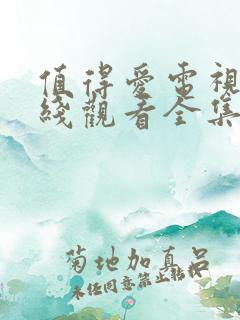 值得爱電視
綫觀看全集
菊地加真呂
未经同意禁止转载